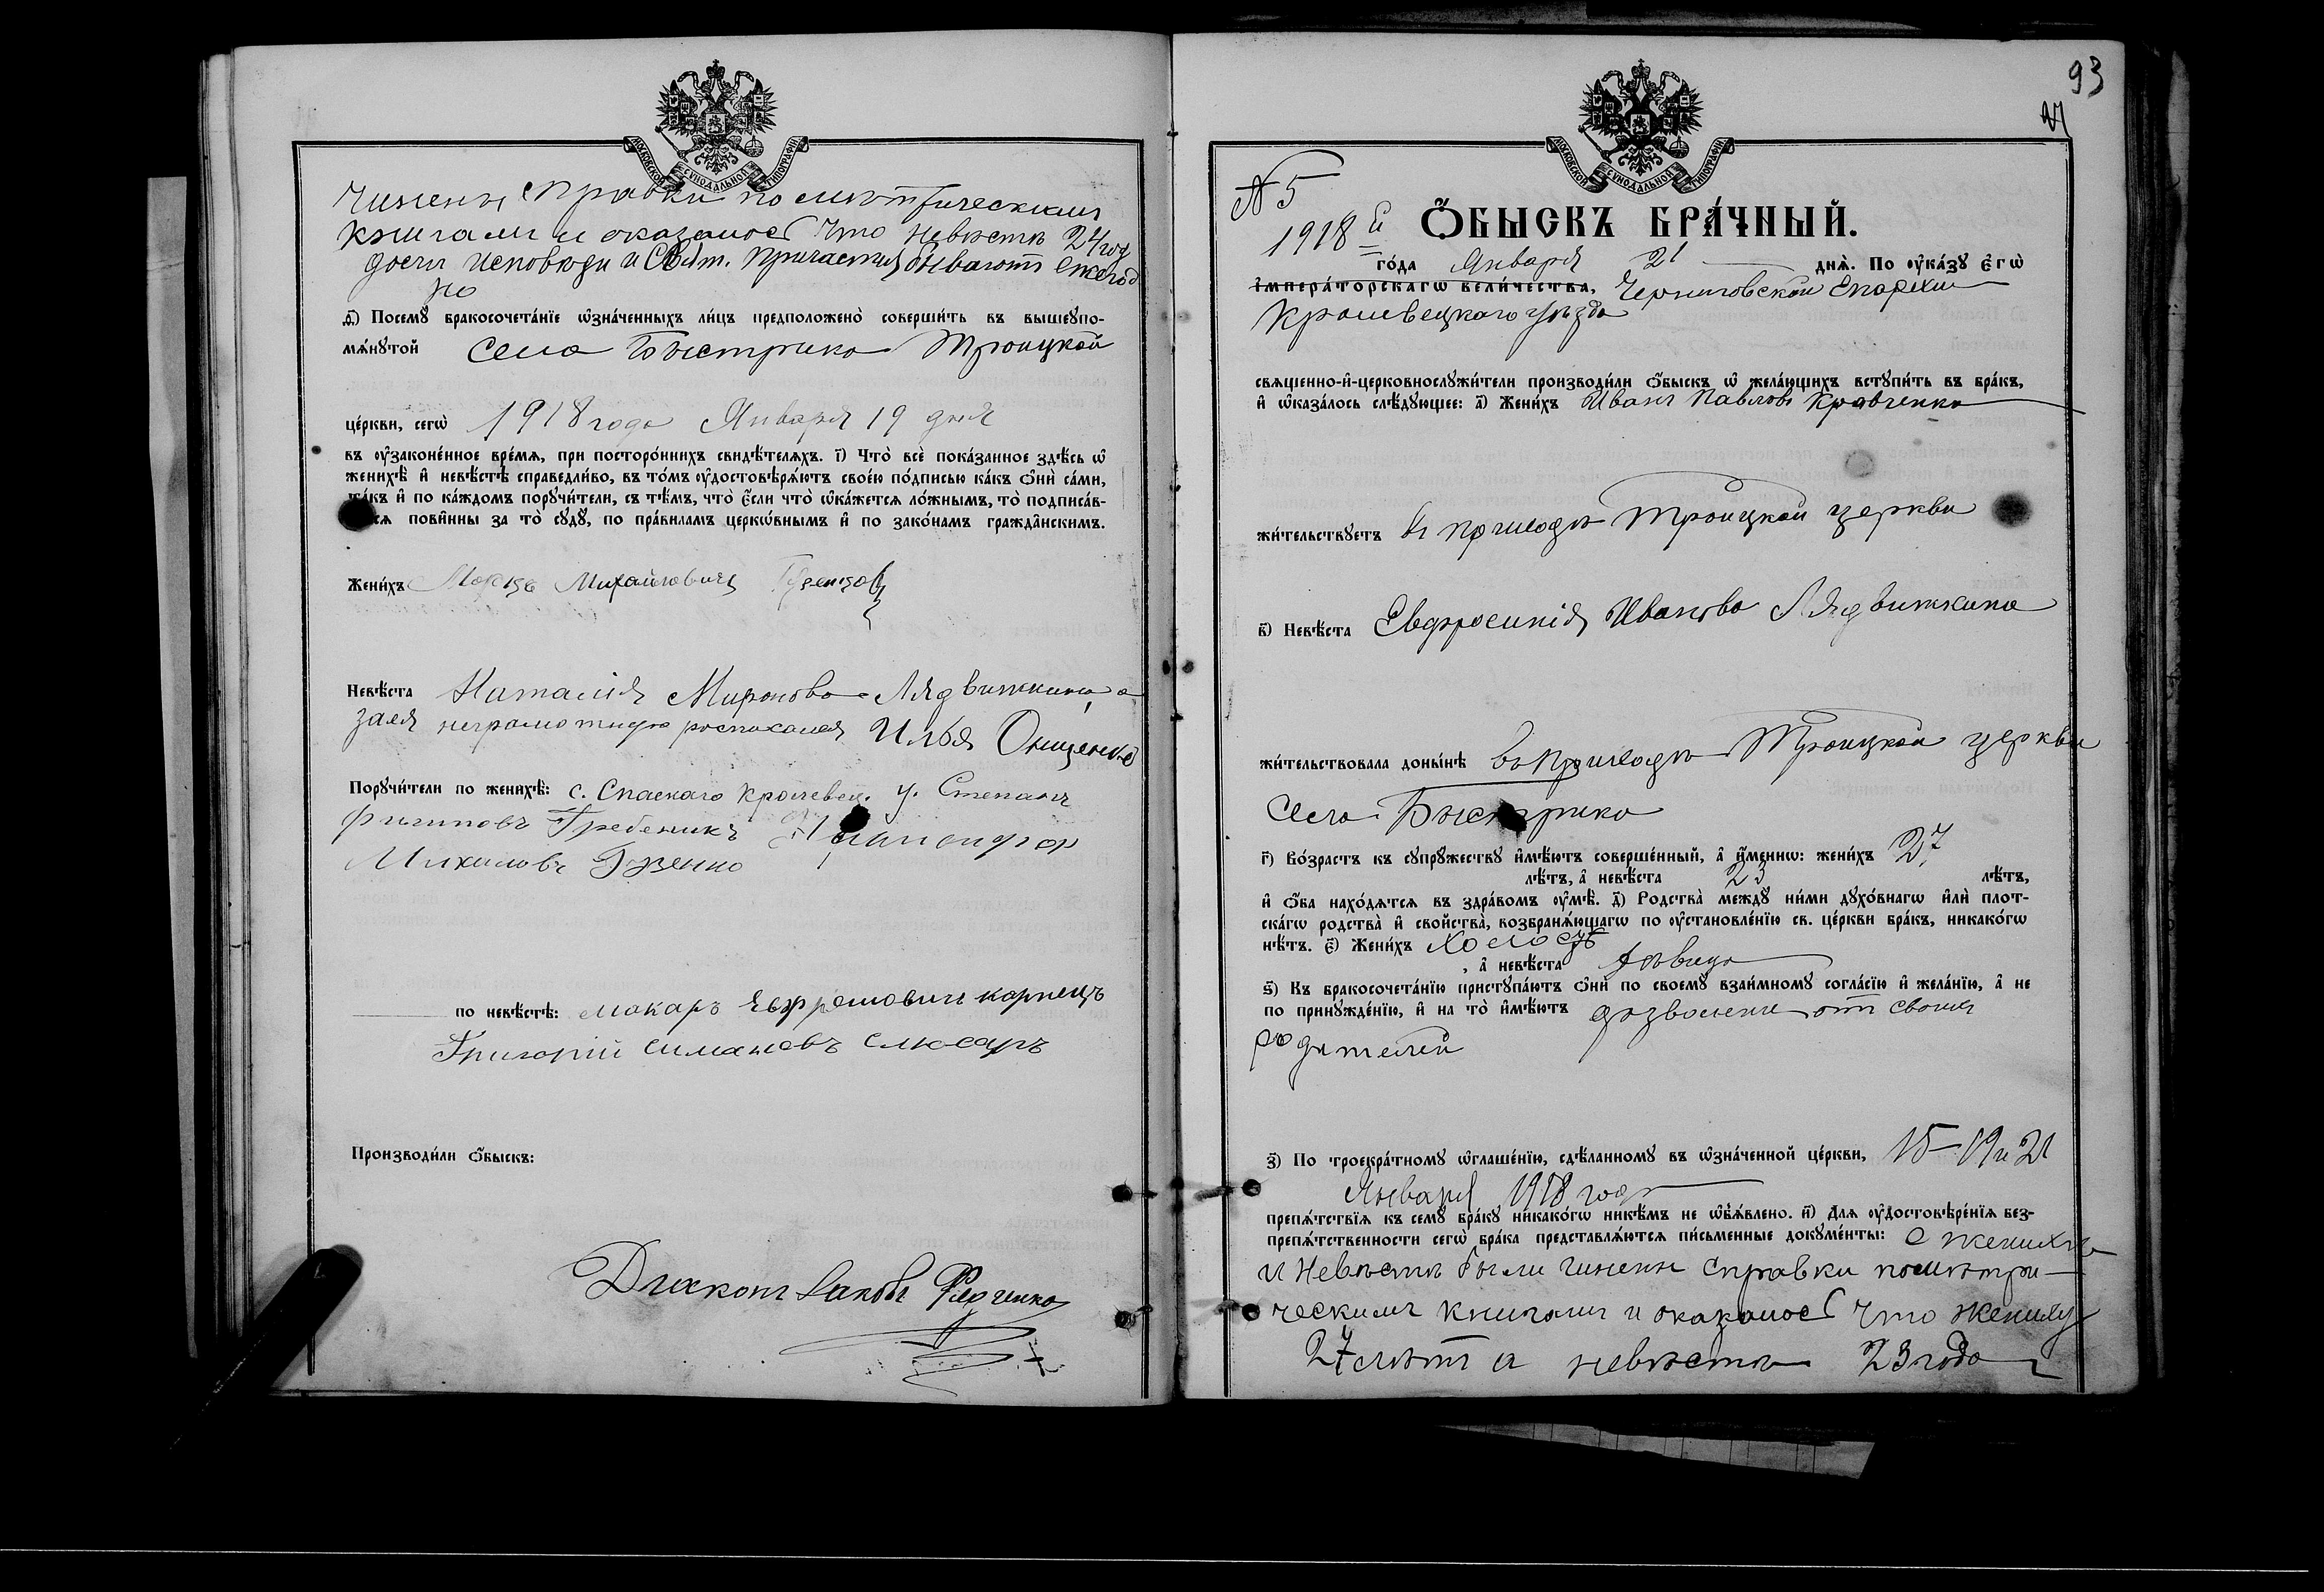 МОСКОВСКОЙ СѴНОДАЛЬНОЙ ТИПОГРАФІИ
Чинены справки по метрическимъ
книгамъ и оказалось что невѣстѣ 24 год
Исповѣди и Свят. Причастія бываютъ ежегод
но
Посемꙋ бракосочета́нїе ѡзна́ченныхъ ли́цъ предположено̀ соверши́ть въ вышеꙋпо-
мѧ́нꙋтой села Быстрика Троицкой
це́ркви, сегѡ̀ 1918 года Января 19 дня
въ ᲂу҆законе́нное вре́мѧ, при посторо́ннихъ свидѣ́телѧхъ. і҃) Что̀ всѐ пока́занное здѣ́сь ѡ҆
женихѣ̀ и҆ невѣ́стѣ справедли́во, въ то́мъ ᲂу҆достовѣрѧ́ютъ свое́ю по́дписью ка́къ ѻ҆нѝ са́ми,
та́къ и҆ по ка́ждомъ порꙋчи́тели, съ тѣ́мъ, что̀ є҆́сли что̀ ѡ҆ка́жетсѧ ло́жнымъ, то̀ подписа́в-
шїесѧ пови́нны за то̀ сꙋдꙋ̀, по пра́виламъ церкѡ́внымъ и҆ по зако́намъ гражда́нскимъ.
Жени́хъ Михайловичъ
Невѣ́ста Наталія Миронова Лядвижкина, а
за нея неграмотную росписался Илья Онищенко
Порꙋчи́тели по женихѣ̀: с. Спаскаго Кролевец. у. Степанъ
Филиповъ Гребеникъ
Михаиловъ Гузенко
по невѣ́стѣ: Макаръ Ефремовичъ Карпецъ
Григорій Симановъ Слюсарь
Производи́ли ѻ҆́быскъ:
Діаконъ Іаковъ Федченко
93
МОСКОВСКОЙ СѴНОДАЛЬНОЙ ТИПОГРАФІИ
№ 5
Ѻ҆́БЫСКЪ БРА́ЧНЫЙ.
1918 го́да Января 21 днѧ̀. По ᲂу҆ка́зꙋ є҆гѡ̀
і҆мпера́торскагѡ вели́чества, Черниговской Епархіи
Кролевецкаго уѣзда
свѧще́нно-и҆-церковнослꙋжи́тели производи́ли ѻ҆́быскъ ѡ҆ жела́ющихъ встꙋпи́ть въ бра́къ,
и҆ ѡ҆каза́лось слѣ́дꙋющее: а҃) Жени́хъ Иванъ Павловъ Кравченко
жи́тельствꙋетъ въ приходѣ Троицкой церкви
в҃) Невѣ́ста Евфросинія Иванова Лядвижкина
жи́тельствовала доны́нѣ въ приходѣ Троицкой церкви
села Быстрика
г҃) Во́зрастъ къ сꙋпрꙋ́жествꙋ и҆мѣ́ютъ соверше́нный, а҆ и҆́меннѡ: жени́хъ 27
лѣ́тъ, а҆ невѣ́ста 23 лѣ́тъ,
и҆ ѻ҆́ба нахо́дѧтсѧ въ здра́вомъ ᲂу҆мѣ̀. д҃) Родства̀ междꙋ̀ ни́ми дꙋхо́внагѡ и҆лѝ плот-
ска́гѡ родства̀ и҆ свойства̀, возбранѧ́ющагѡ по ᲂу҆становле́нїю св. це́ркви бра́къ, никако́гѡ
нѣ́тъ. є҃) Жени́хъ холостъ
, а҆ невѣ́ста дѣвица
ѕ҃) Къ бракосочета́нїю пристꙋпа́ютъ ѻ҆нѝ по своемꙋ̀ взаи́мномꙋ согла́сїю и҆ жела́нїю, а҆ не
по принꙋжде́нїю, и҆ на то̀ и҆мѣ́ютъ дозволеніе отъ своихъ
родителей
з҃) По троекра́тномꙋ ѡ҆глаше́нїю, сдѣ́ланномꙋ въ ѡ҆зна́ченной це́ркви, 15-19 и 21
Января 1918 года
препѧ́тствїѧ къ семꙋ̀ бра́кꙋ никако́гѡ никѣ́мъ не ѡ҆б̾ѧ́влено. и҃) Длѧ ᲂу҆достовѣре́нїѧ без-
препѧ́тственности сегѡ̀ бра́ка представлѧ́ютсѧ пи́сьменные докꙋме́нты: о женихѣ
и невѣстѣ были чинены справки по метри-
ческимъ книгамъ и оказалось что жениху
27 лѣтъ а невѣстѣ 23 года